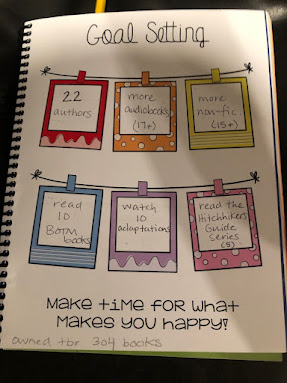 Goal Setting
22
authors
more
audiobooks
(17+)
more
non-fic.
(15+)
read
10
BOTM
books
watch
10
adaptations
read the
Hitchhikers
Guide
series
(5)
Make time for what
makes you happy!
owned tbr 304 books